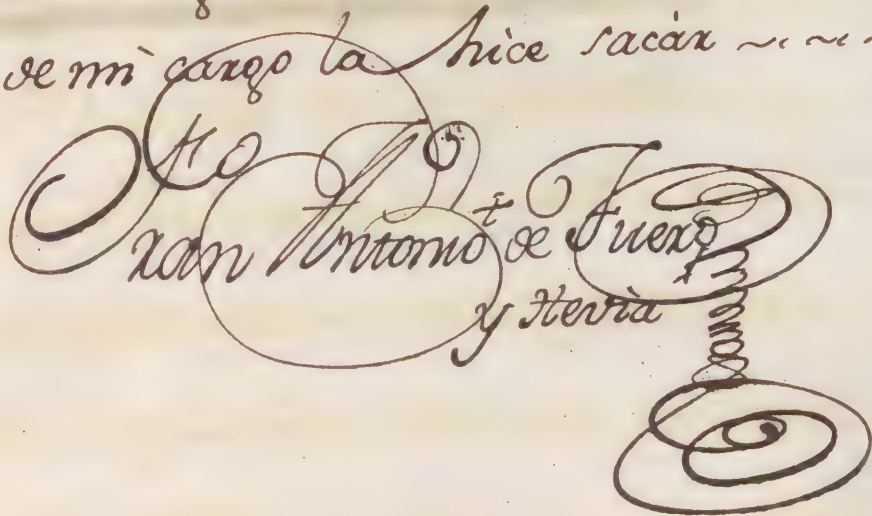 de mì cargo la hìce sacàr ~ ~
Fran^co Antonio de Fuero
y Hevìa